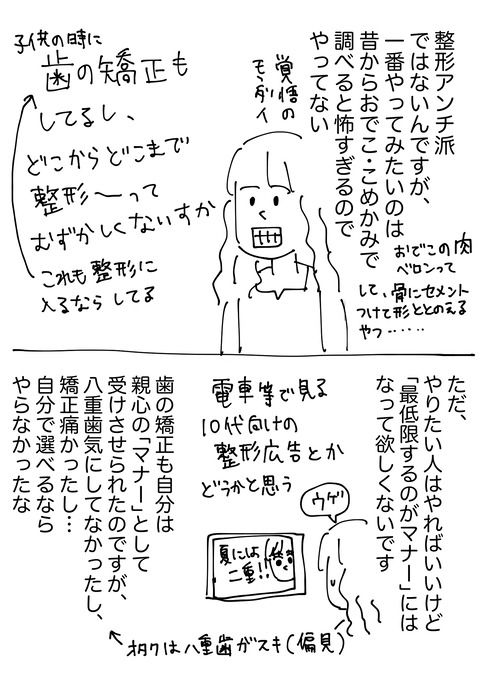 整形アンチ派
ではないんですが、
一番やってみたいのは
昔からおでこ・こめかみで
調べると怖すぎるので
やってない
おでこの肉
ベロンって
して、骨にセメント
つけて形ととのえる
やつ……
覚悟の
モンダイ
子供の時に
歯の矯正も
してるし、
どこからどこまで
整形〜って
むずかしくないすか
これも整形に
入るなら してる
ただ、
やりたい人はやればいいけど
「最低限するのがマナー」には
なって欲しくないです
ウゲ
電車等で見る
10代向けの
整形広告とか
どうかと思う
夏には
二重!!
歯の矯正も自分は
親心の「マナー」として
受けさせられたのですが、
八重歯気にしてなかったし、
矯正痛かったし…
自分で選べるなら
やらなかったな
オタクは八重歯がスキ(偏見)